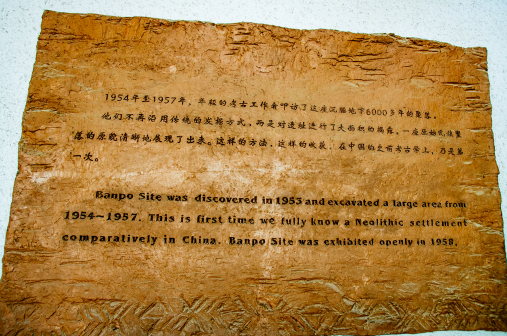 1954年至1957年，年轻的考古工作者叩访了这座沉睡地下6000多年的聚落。
他们不再沿用传统的发掘方式，而是对遗址进行了大面积的揭露，一座原始氏族聚
落的原貌清晰地展现了出来。这样的方法，这样的收获，在中国的史前考古学上，乃是第
一次。
Banpo Site was discovered in 1953 and excavated a large area from
1954~1957. This is first time we fully know a Neolithic settlement
comparatively in China. Banpo Site was exhibited openly in 1958.